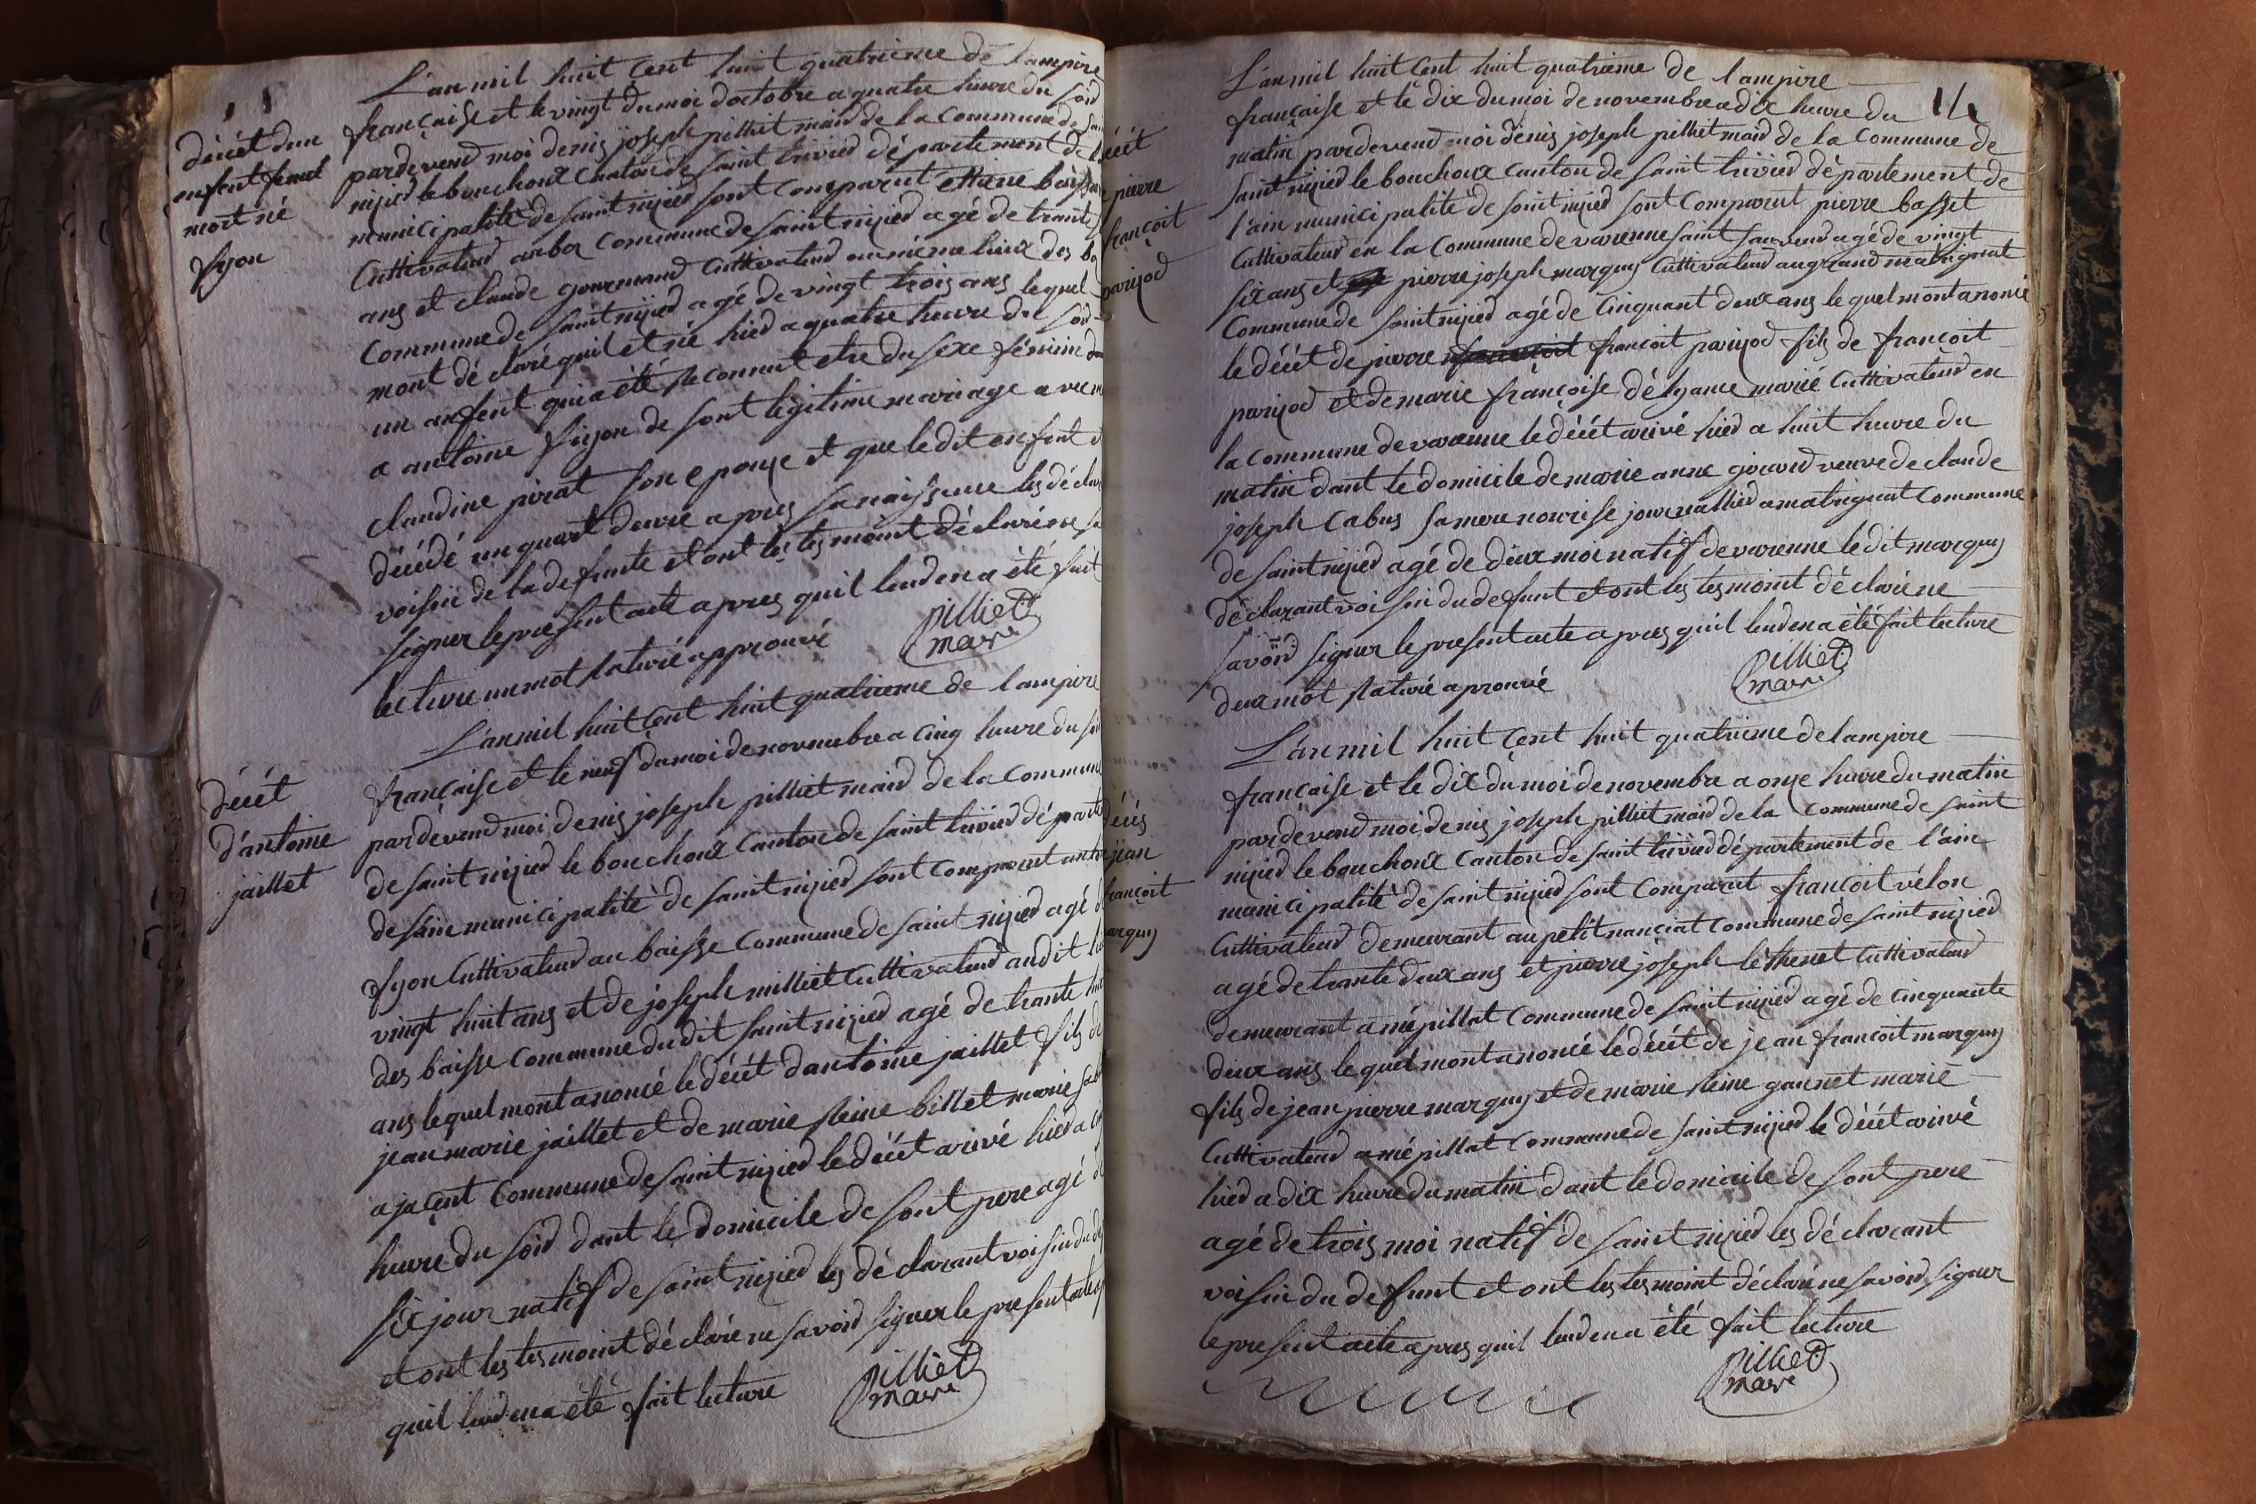 L'an mil huit cent huit quatrieme de lampire
française et le vingt du moi doctobre a quatre heure du soid
pardevend moi denis joseph pilliet maid de la Commune de
nizied le bouchoux Canton de saint trivied département de
municipalité de saint nizied sont Comparut ettiene
Cultivateud au ba Commune de saint nizied agé de trante
ans et claude gourmand Cultivateud au même lieux des
Commune de saint nizied agé de vingt trois ans lequel
mont déclaré quil et né hied a quatre heure du soid
un anfent qui a été reconnut etre du sexe féminin
a antoine fyon de sont légitime mariage avec
claudine pirat son epouse et que le dit anfent
décédé un quart deure apres sa naissence les déclar
voisin de la defunte et ont les tesmoint déclaré ne
signer le present acte apres quil leud en a été fait
lecture un mot raturé approuvé
pilliet
maire
décét dun
enfent femel
mort né
fyon
L'an mil huit cent huit quatrieme de lampire
française et le neuf du moi de novembre a cinq heure du soi
pardevend moi denis joseph pilliet maid de la Commune
de saint nizied le bouchoux Canton de saint trivied départe
de lain municipalité de saint nizied sont Comparut
fyon Cultivateud au baisse Commune de saint nizied agé
vingt huit ans et de joseph milliet Cultivateud audit
des baisse Commune dudit saint nizied agé de trante
ans lequel mont anoncé le décét dantoine jaillet fils de
jean marie jaillet et de marie reine billet marié
a jacent Commune de saint nizied le décét arivé hied a
heure du soid dant le domicile de sont pere agé de
six jour natif de saint nizied les déclarant voisin du de
et ont les tesmoint déclaré ne savoid signer le present acte
quil leud en a été fait lecture
pilliet
maire
décét
d'antoine
jaillet
14
L'an mil huit cent huit quatrieme de lampire
française et le dix du moi de novembre a dix heure du
matin pardevend moi denis joseph pilliet maid de la Commune de
saint nizied le bouchoux canton de saint trivied département de
l'ain municipalité de saint nizied sont Comparut pierre basset
Cultivateud en la Commune de varenne saint sauveud agé de vingt
six ans et pierre joseph marquis Cultivateud au grand matrignat
Commune de saint nizied agé de Cinquant deux ans lequel mont anoncé
le décét de pierre françoit parizod fils de françoit
parizod et de marie françoise délyance marié Cultivateud en
la Commune de varenne le décét arivé hied a huit heure du
matin dant le domicile de marie anne girard veuve de claude
joseph Cabus sa mere nourise journallied a matrignat Commune
de saint nizied agé de deux moi natif de varenne le dit marquis
déclarant voisin du defunt et ont les tesmoint déclaré ne
savoid signer le present acte apres quil leud en a été fait lecture
deux mot raturé aprouvé
pilliet
maire
décét
pierre
françoit
parizod
L'an mil huit cent huit quatrieme de lampire
française et le dix du moi de novembre a onze heure du matin
pardevend moi denis joseph pilliet maid de la Commune de saint
nizied le bouchoux Canton de saint trivied département de l'ain
municipalité de saint nizied sont Comparut françoit vélon
Cultivateud demeurant au petit nanciat Commune de saint nizied
agé de trante deux ans et pierre joseph lethenet Cultivateud
demeurant a mépillat Commune de saint nizied agé de cinquante
deux ans lequel mont anoncé le décét de jean françoit marquis
fils de jean pierre marquis et de marie reine gaunet marié
Cultivateud a mépillat Commune de saint nizied le décét arivé
hied a dix heure du matin dant le domicile de sont pere
agé de trois moi natif de saint nizied les déclarant
voisin du defunt et ont les tesmoint déclaré ne savoid signer
le present acte apres quil leud en a été fait lecture
pilliet
maire
décés
jean
françoit
marquis